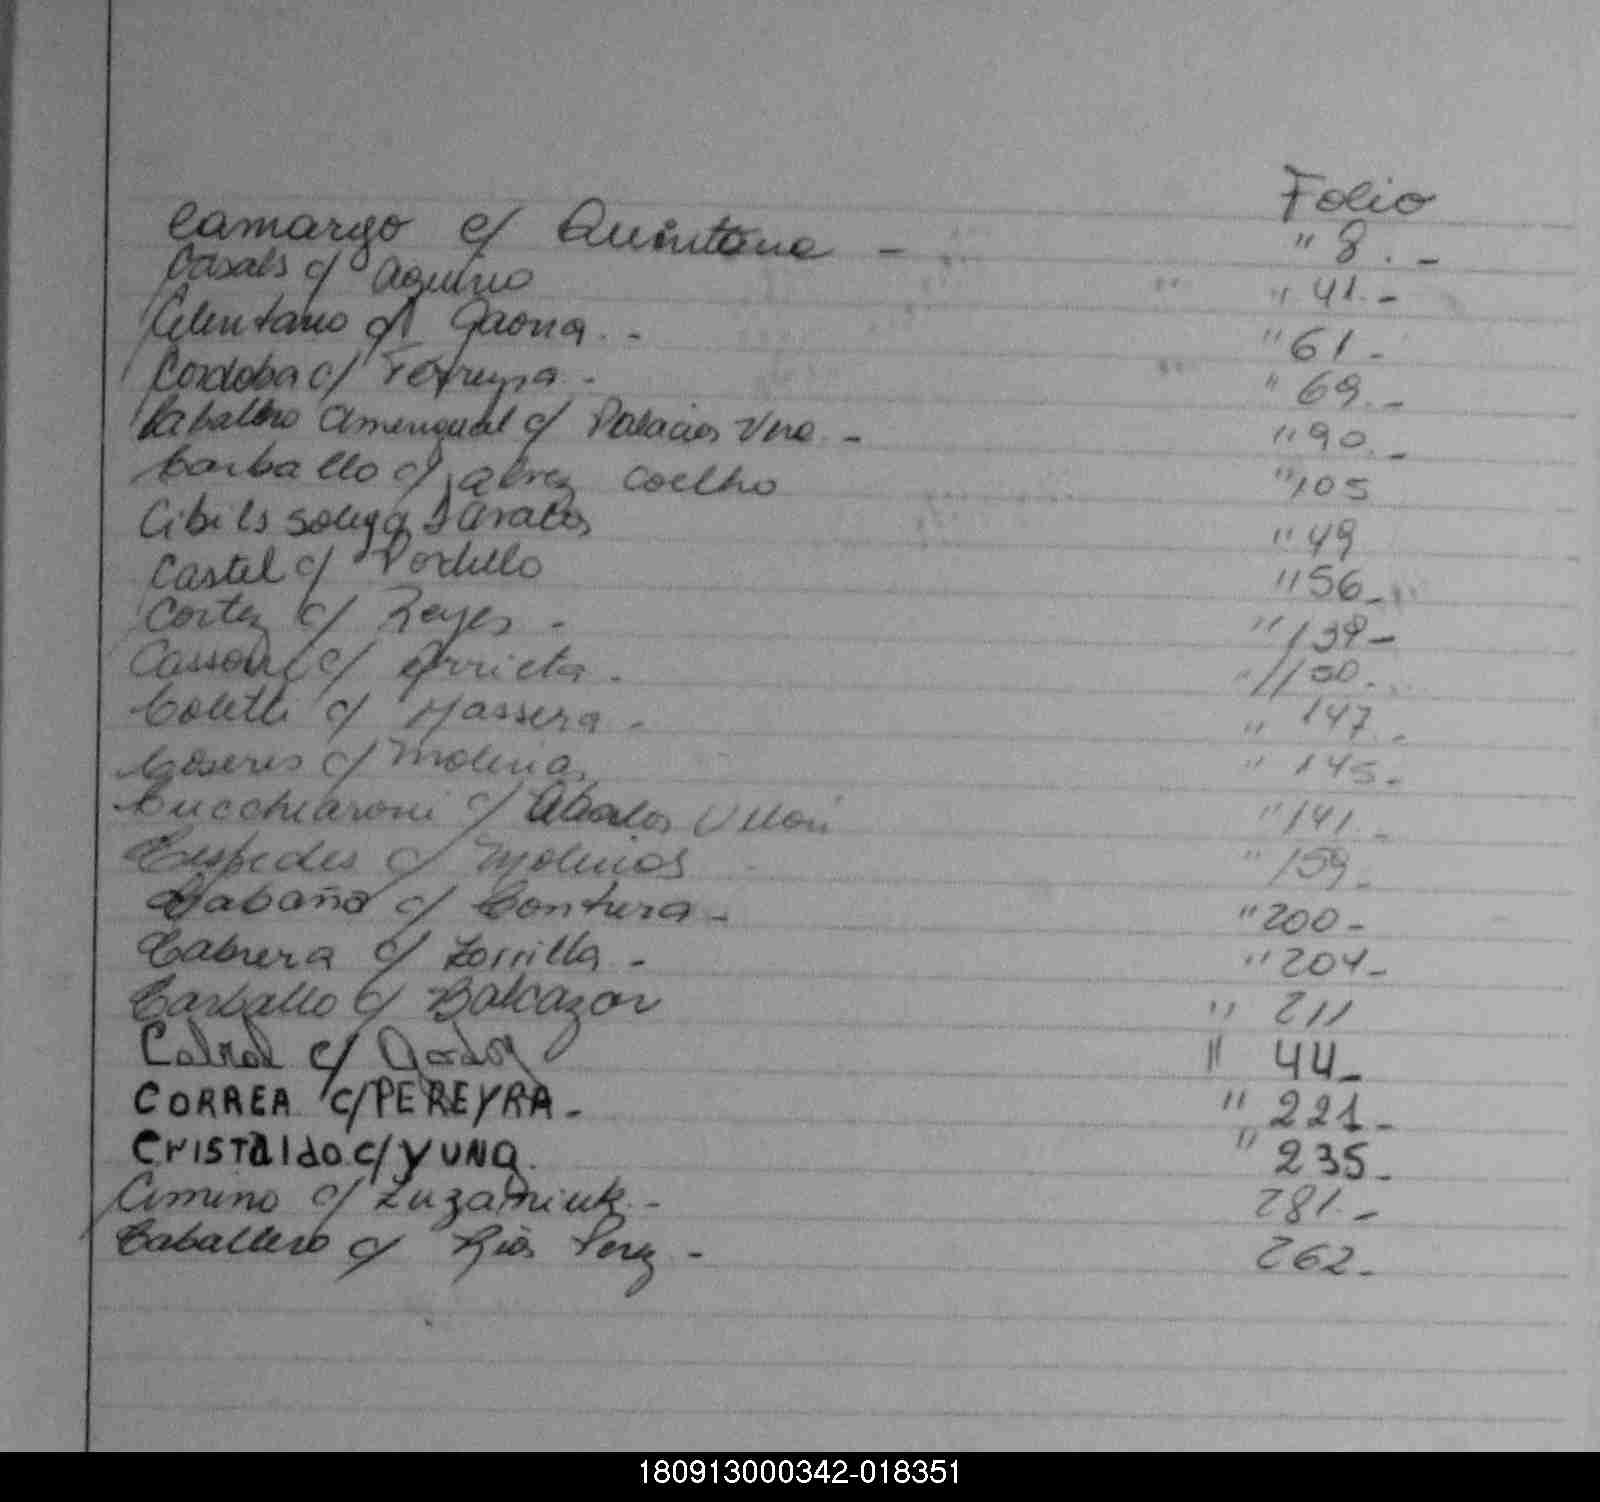 Folio
Camargo c/ Quintana - " 8. -
Casals c/ Aquino " 41. -
Celentano c/ Gaona. - " 61 -
Cordoba c/ Ferreyra - " 69. -
Caballero Amengual c/ Palacios Vera. - " 90. -
Carballo c/ Alvez Coelho " 105
Cibils c/ " 49
Castel c/ Portillo " 56 -
Cortez c/ Reyes - " 139 -
c/ Arrieta - " 150.
Coletti c/ Massera - " 147. -
Caseres c/ Molinas " 145 -
Cucchiaroni c/ Abalos " 141. -
Cespedes c/ Molinos " 159 -
Cabaña c/ Contrera - " 200 -
Cabrera c/ Zorrilla - " 204 -
Carballo c/ Balcazar " 211
Cabral c/ Godoy " 44 -
CORREA c/ PEREYRA - " 221 -
CRISTALDO c/ YUNQ. " 235 -
Cimino c/ - 281. -
Caballero c/ Rios Perez - 262 -
180913000342-018351